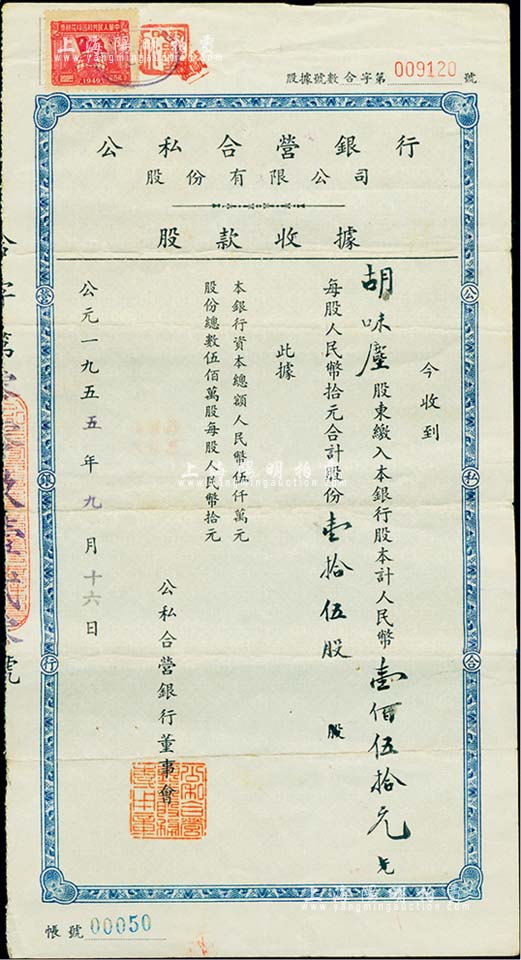 中華人民共和國印花稅票
1949
股據號數 合 字第 009120 號
公私合營銀行
股份有限公司
股款收據
今收到
胡味塵股東繳入本銀行股本計人民幣壹佰伍拾元
每股人民幣拾元合計股份壹拾伍股 股
此據
本銀行資本總額人民幣伍仟萬元
股份總數伍佰萬股每股人民幣拾元
公私合營銀行董事會
公元一九五五年九月十六日
公
私
合
營
銀
行
帳號 00050
上海陽明拍賣
www.yangmingauction.com
上海陽明拍賣
www.yangmingauction.com